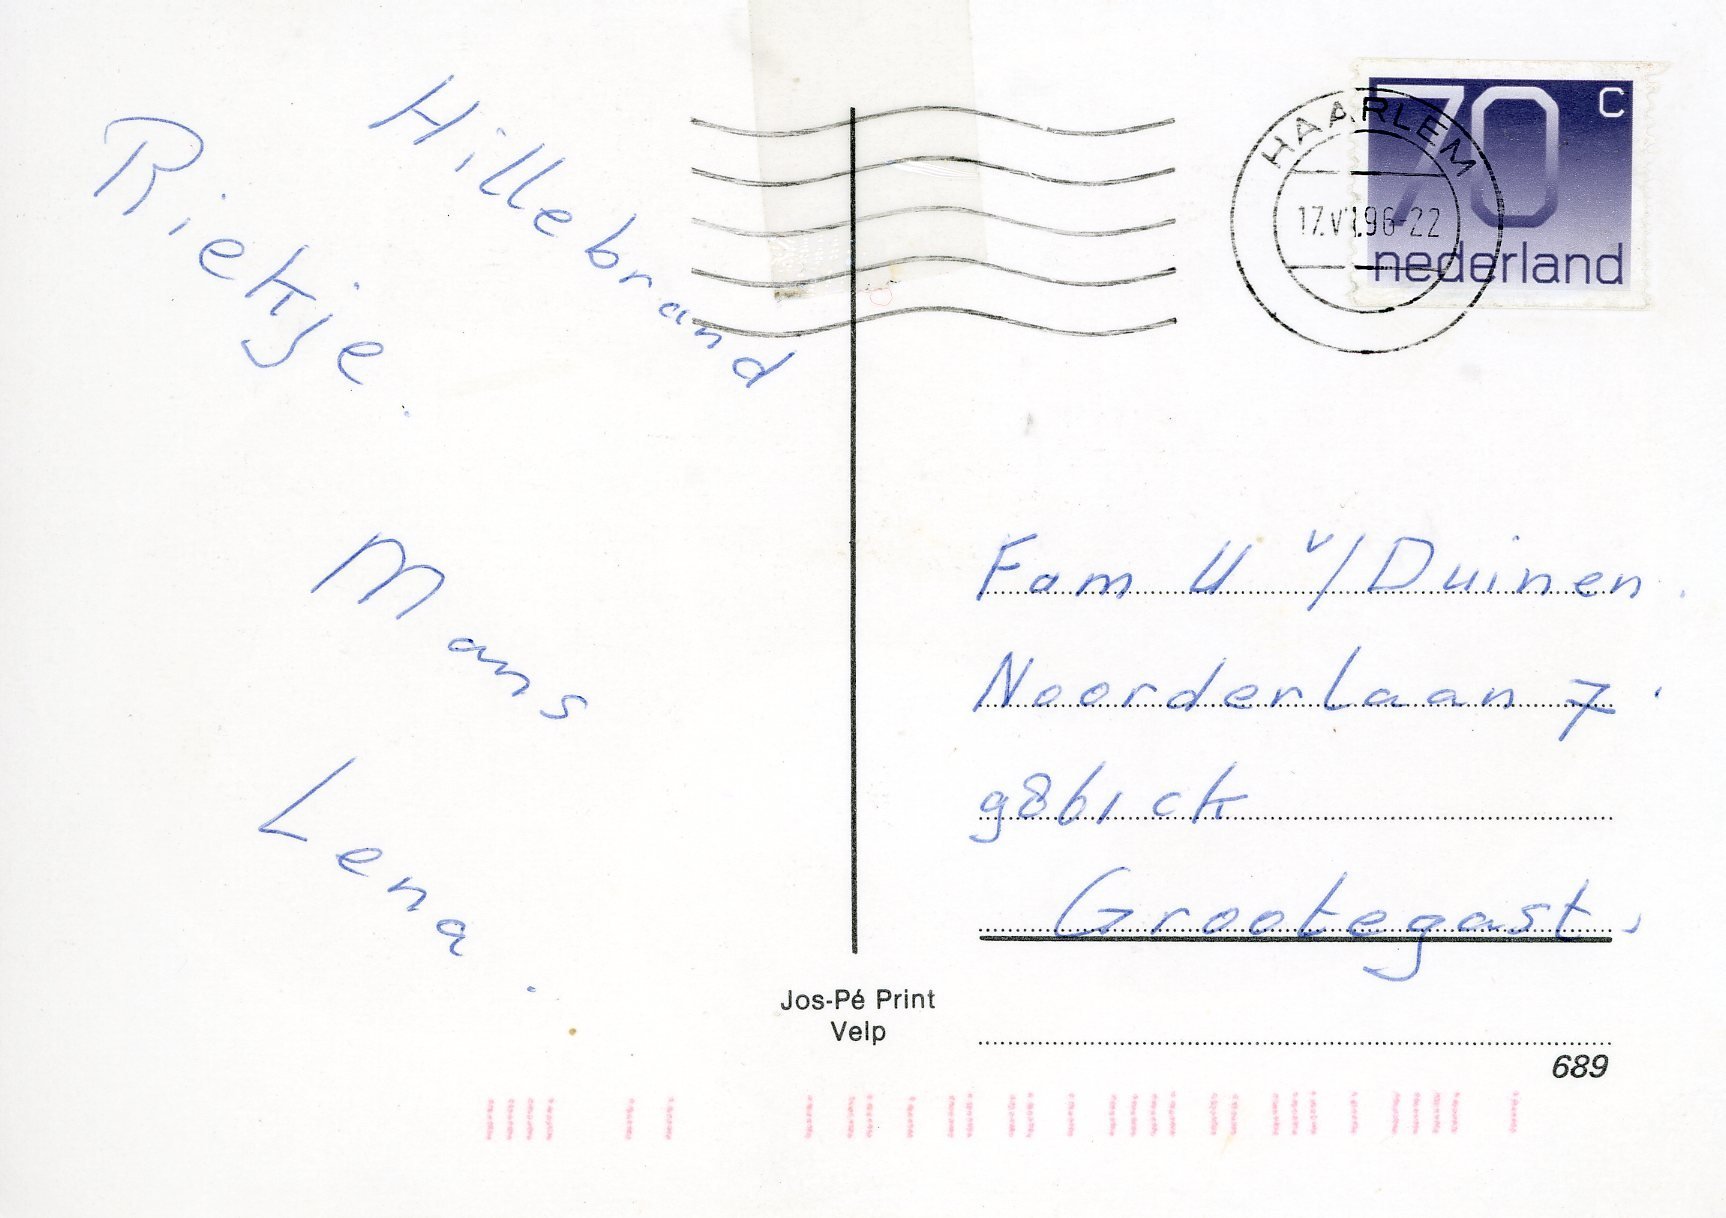 Hillebrand
Rietje.
Mans
Lena.
70 c
nederland
HAARLEM
96-22
Fam U v/Duinen.
Noorderlaan 7.
9861 ck
Grootegast.
Jos-Pé Print
Velp
689